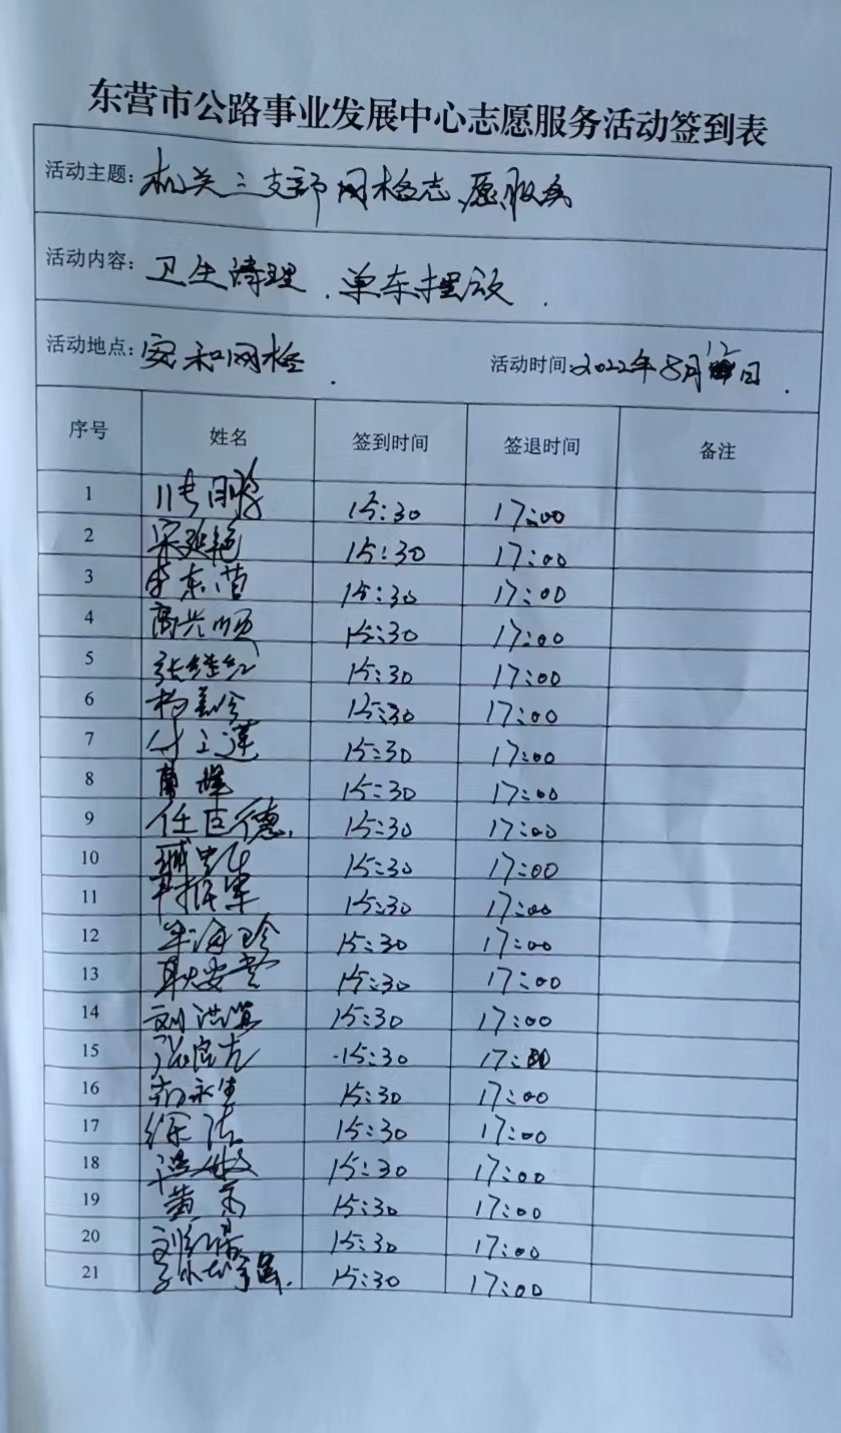 东营市公路事业发展中心志愿服务活动签到表
活动主题：机关三支部网格志愿服务
活动内容：卫生清理．单东摆放．
活动地点：安和网格． 活动时间：2022年8月12日．
序号 姓名 签到时间 签退时间 备注
1 15:30 17:00
2 宋延艳 15:30 17:00
3 李东营 15:30 17:00
4 高兴顺 15:30 17:00
5 张继红 15:30 17:00
6 15:30 17:00
7 付立莲 15:30 17:00
8 15:30 17:00
9 任巨德. 15:30 17:00
10 15:30 17:00
11 15:30 17:00
12 牟海珍 15:30 17:00
13 耿安营 15:30 17:00
14 刘洪 15:30 17:00
15 15:30 17:00
16 永生 15:30 17:00
17 徐洁 15:30 17:00
18 15:30 17:00
19 黄 15:30 17:00
20 刘红 15:30 17:00
21 15:30 17:00